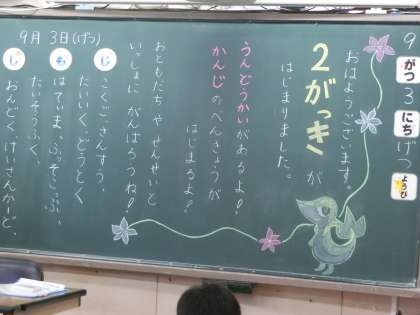 9がつ3にちげつようび
おはようございます。
2がっきが
はじまりました。
うんどうかいがあるよ!
かんじのべんきょうが
はじまるよ!
おともだちやせんせいと
いっしょにがんばろうね!
9月3日(げつ)
じ こくご、さんすう、
たいいく、どうとく
も はてがみ、ふっこつぶ、
たいそうふく、
し おんどく、けいさんかーど、